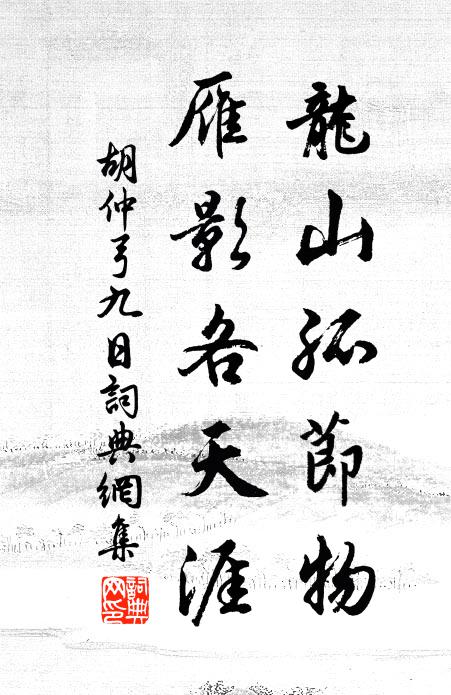 龍山孤節物
雁影各天涯
胡仲弓九日詞典網集
詞典网印